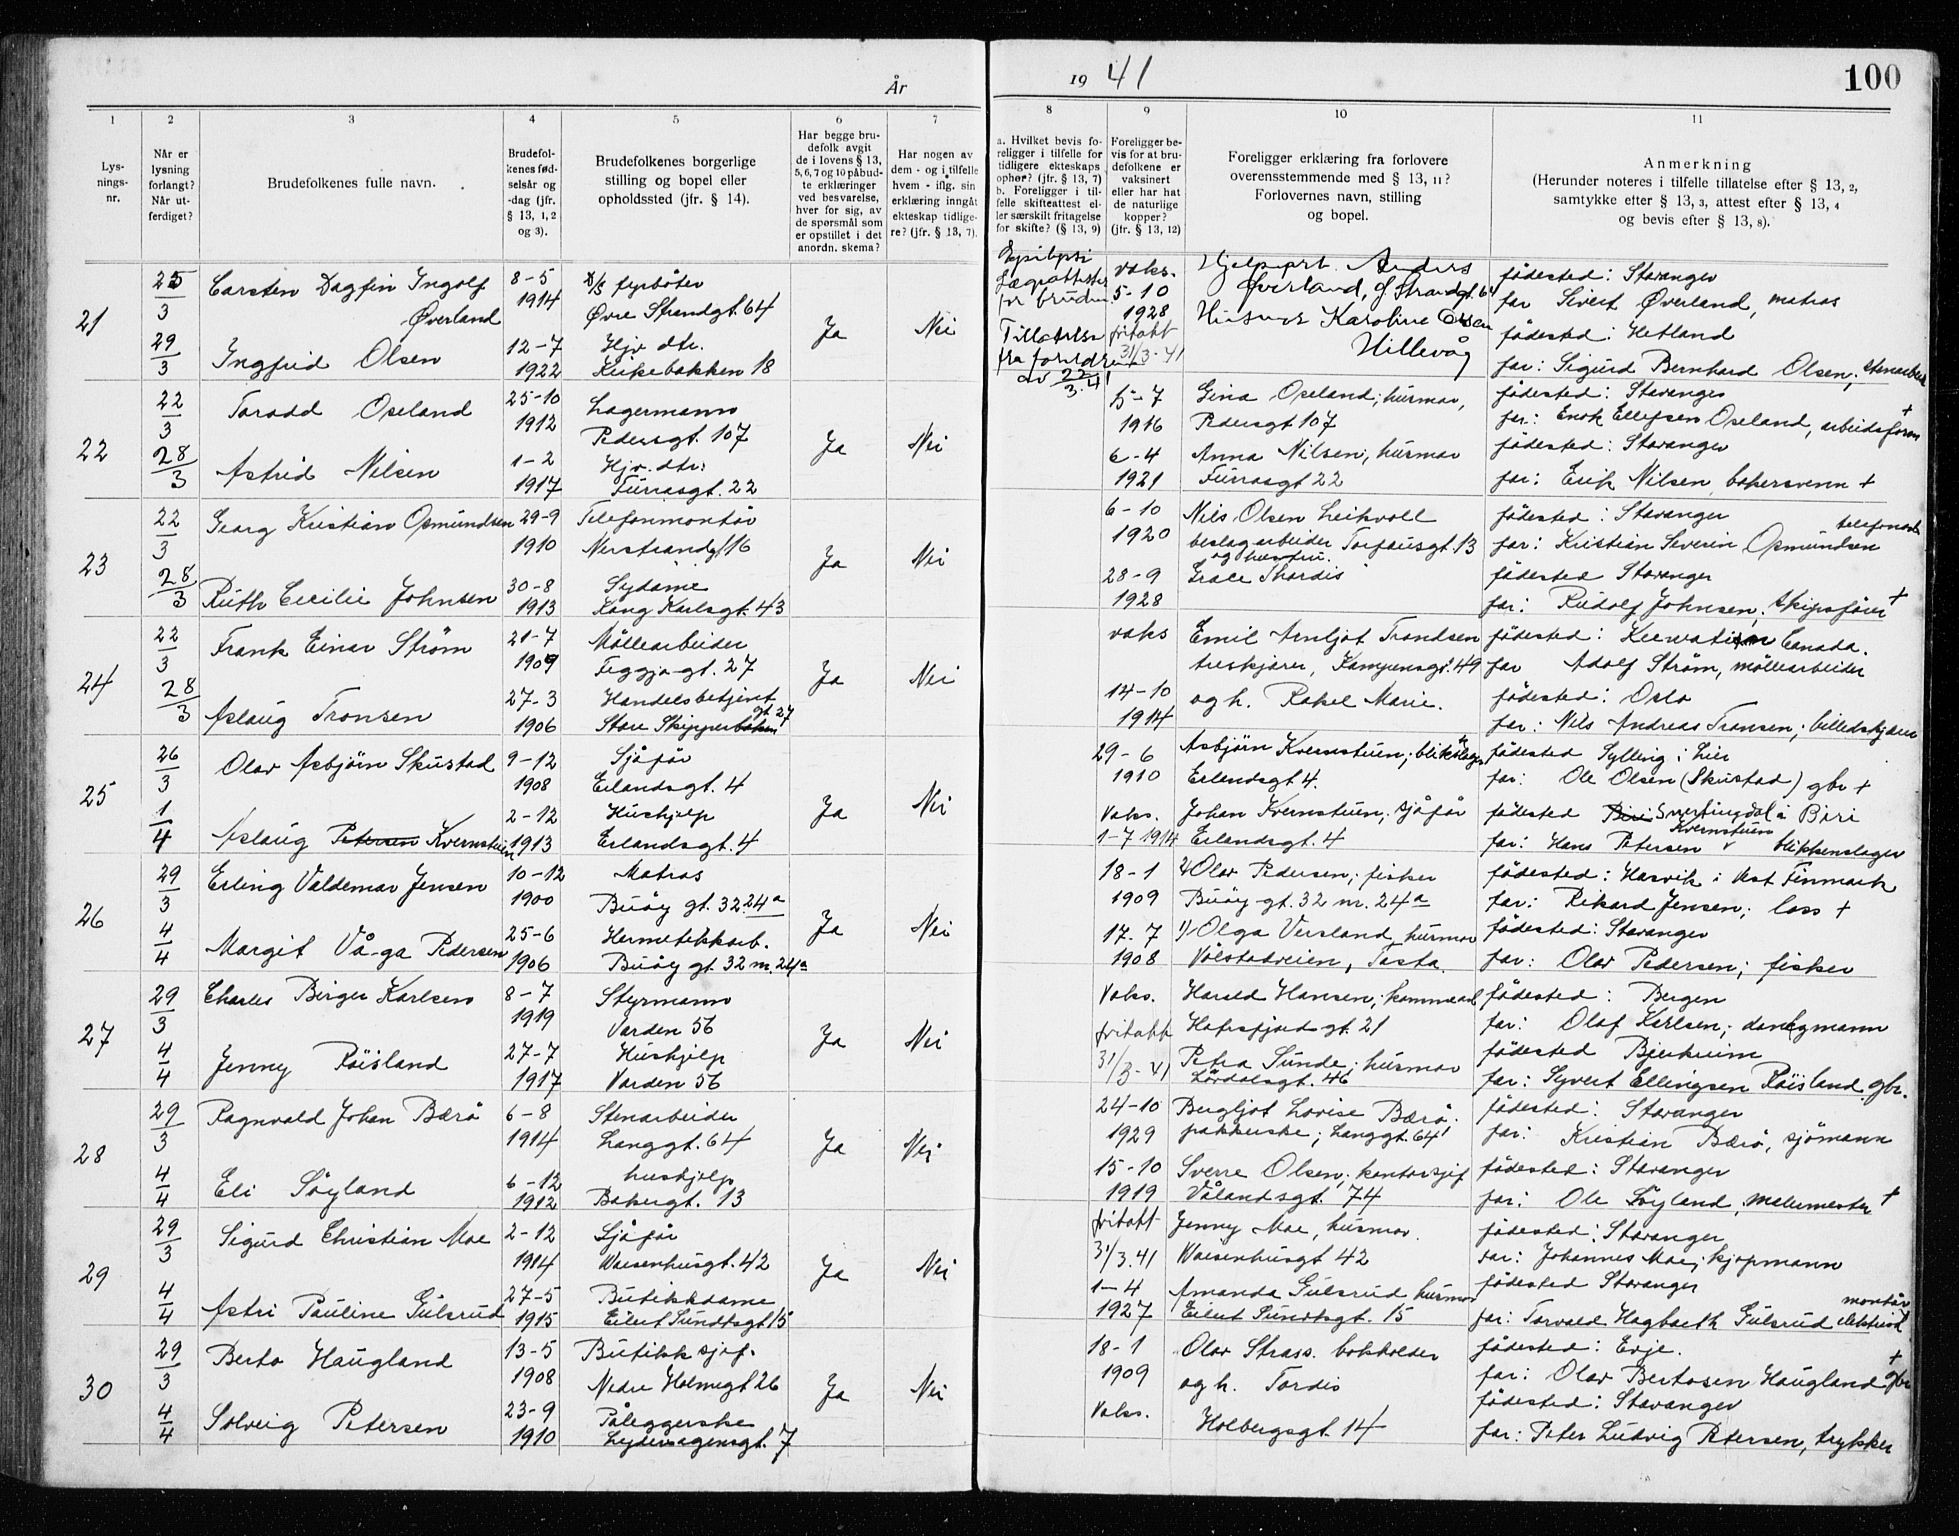 År
19 41
100
1
2
3
4
5
6
7
8
9
10
11
Lys-
nings-
nr.
Når er
lysning
forlangt?
Når ut-
ferdiget?
Brudefolkenes fulle navn.
Brudefol-
kenes fød-
selsår og
-dag (jfr.
§ 13, 1, 2
og 3).
Brudefolkenes borgerlige
stilling og bopel eller
opholdssted (jfr. § 14).
Har begge bru-
defolk avgit
de i lovens § 13,
5, 6, 7 og 10 påbud-
te erklæringer
ved besvarelse,
hver for sig, av
de spørsmål som
er opstillet i det
anordn. skema?
Har nogen av
dem - og i tilfelle
hvem - iflg. sin
erklæring inngått
ekteskap tidlige-
re? (jfr. § 13, 7).
a. Hvilket bevis fo-
religger i tilfelle for
tidligere ekteskaps
ophør? (jfr. § 13, 7)
b. Foreligger i til-
felle skifteattest el-
ler særskilt fritagelse
for skifte? (§ 13, 9)
Foreligger be-
vis for at bru-
defolkene er
vaksinert
eller har hat
de naturlige
kopper?
(jfr. § 13, 12)
Foreligger erklæring fra forlovere
overensstemmende med § 13, 11?
Forlovernes navn, stilling
og bopel.
Anmerkning
(Herunder noteres i tilfelle tillatelse efter § 13, 2,
samtykke efter § 13, 3, attest efter § 13, 4
og bevis efter § 13, 8).
21
25/3
29/3
Carsten Dagfin Ingolf
Øverland
Ingfrid Olsen
8-5
1914
12-7
1922
D/S fyrbøter
Øvre Strandgt. 64
Hjv dtr.
Kirkebakken 18
Ja
Nei
Epilepsi
Lægeattester
for bruden
Tillatelse
fra foreldre
av 22/3.41
vaks.
5-10
1928
fritatt
31/3-41
Anders
Øverland, Ø Strandgt. 64
Husmor Karoline Olsen
Hillevåg
fødested: Stavanger
far Sivert Øverland, matros
fødested: Hetland
far: Sigurd Bernhard Olsen, stenarbeid
22
22/3
28/3
Toradd Oseland
Astrid Nilsen
25-10
1912
1-2
1917
Lagermann
Pedersgt. 107
Hjv. dtr.
Furrasgt. 22
Ja
Nei
15-7
1916
6-4
1921
Gina Oseland; husmor,
Pedersgt 107
Anna Nilsen, husmor
Furrasgt 22
fødested: Stavanger
far: Enok Ellefsen Oseland, arbeidsform +
fødested: Stavanger
far: Erik Nilsen, bakersvenn +
23
22/3
28/3
Georg Kristian Osmundsen
Ruth Cecilie Johnsen
29-9
1910
30-8
1913
Telefonmontør
Nerstrandgt 16
Sydame
Kong Karlsgt. 43
Ja
Nei
6-10
1920
28-9
1928
Nils Olsen Leikvoll
beslagarbeider Torfæusgt. 13
og hustru.
Grace Thordis
fødested: Stavanger
far: Kristian Severin Osmundsen
fødested Stavanger
far: Rudolf Johnsen, skipsfører +
24
22/3
28/3
Frank Einar Strøm
Aslaug Tronsen
21-7
1909
27-3
1906
Møllearbeider
Figgjogt. 27
Handelsbetjent
Store Skippergt. 27
Ja
Nei
vaks
14-10
1914
Emil Arnljot Trondsen
treskjærer, Kampensgt. 49
og h. Rakel Marie.
fødested: Keewatin Canada.
far Adolf Strøm, møllearbeider
fødested: Oslo
far: Nils Andreas Tronsen; billedskjærer
25
26/3
1/4
Olav Asbjørn Skustad
Aslaug Petersen Kvernstuen
9-12
1908
2-12
1913
Sjåfør
Erlandsgt. 4
Hushjelp
Erlandsgt. 4
Ja
Nei
29-6
1910
Vaks.
1-7 1914
Asbjørn Kvernstuen; blikslager
Erlandsgt. 4.
Johan Kvernstuen; sjåfør
Erlandsgt. 4
fødested Sylling i Lier
far: Ole Olsen (Skustad) gbr +
fødested Biri Snertingdal i Biri
Kvernstuen
far: Hans Petersen blikkenslager
26
29/3
4/4
Erling Valdemar Jensen
Margit Våga Pedersen
10-12
1900
25-6
1906
Matros
Buøy gt. 32 24a
Hermetikkarb.
Buøy gt. 32 nr. 24a
Ja
Nei
18-1
1909
17-7
1908
2/ Olav Pedersen; fisker
Buøy gt. 32 nr. 24a
1/ Olga Versland, husmor
Vålstadveien, Tasta.
fødested: Hasvik i Vest Finmark
far: Rikard Jensen; loss +
fødested: Stavanger
far: Olav Pedersen; fisker
27
29/3
4/4
Charles Birger Karlsen
Jenny Røisland
8-7
1919
27-7
1917
Styrmann
Varden 56
Hushjelp
Varden 56
Ja
Nei
Vaks.
fritatt
31/3-41
Harald Hansen;
Hafrsfjordgt. 21
Petra Sunde; husmor
Lårdalsgt. 46
fødested: Bergen
far: Olaf Karlsen;
fødested Bjerkreim
far: Syvert Ellingsen Røisland gbr.
28
29/3
4/4
Ragnvald Johan Bærø
Eli Søyland
6-8
1914
6-12
1912
Stenarbeider
Langgt. 64
hushjelp
Bakergt. 13
Ja
Nei
24-10
1929
15-10
1919
Bergljot Lovise Bærø.
pakkerske; Langgt. 64
Sverre Olsen, kontorsjef
Vålandsgt. 74
fødested: Stavanger
far: Kristian Bærø, sjømann
fødested: Stavanger
far: Ole Søyland, malermester +
29
29/3
4/4
Sigurd Christian Moe
Astri Pauline Gulsrud
2-12
1914
27-5
1915
Sjåfør
Waisenhusgt. 42
Butikkdame
Eilert Sundtsgt. 15
Ja
Nei
fritatt
31/3.41
1-4
1927
Jenny Moe, husmor.
Waisenhusgt 42
Amanda Gulsrud husmor
Eilert Sundtsgt. 15
fødested: Stavanger
far: Johannes Moe; kjøpmann
fødested Stavanger
montør
far: Torvald Hagbarth Gulsrud elektrisk
30
29/3
4/4
Berto Haugland
Solveig Petersen
13-5
1908
23-9
1910
Butikksjef.
Nedre Holmegt 26
Påleggerske
Lyder Sagensgt. 7
Ja
Nei
18-1
1909
Vaks.
Olav Strass. bokholder
og h. Tordis
Holbergsgt. 14
fødested: Evje.
far: Olav Bertosen Haugland gbr +
fødested: Stavanger
far: Peter Ludvig Petersen, trykker